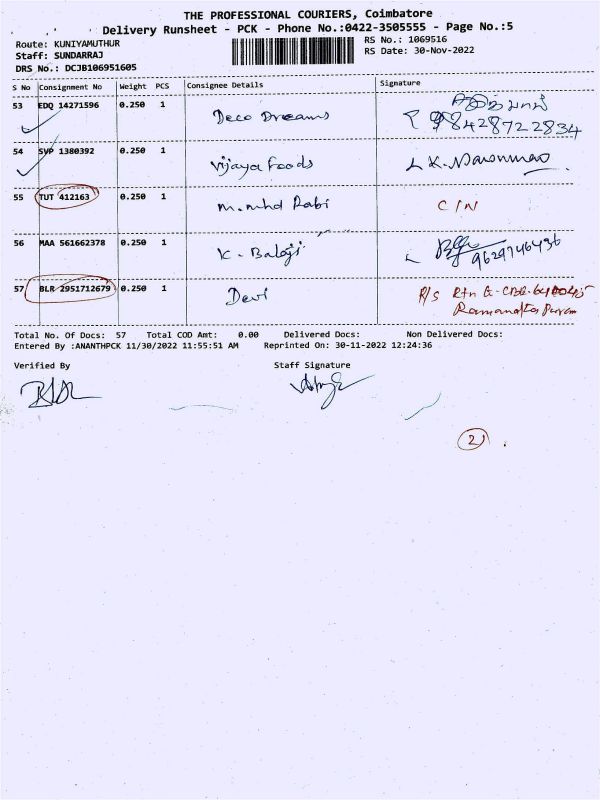 THE PROFESSIONAL COURIERS, Coimbatore
Delivery Runsheet - PCK - Phone No.:0422-3505555 - Page No.:5
Route: KUNIYAMUTHUR
RS No.: 1069516
Staff: SUNDARRAJ
RS Date: 30-Nov-2022
DRS No.: DCJB106951605
S No Consignment No Weight PCS Consignee Details Signature
53 EDQ 14271596 0.250 1 Deco Dreams
9842872 2834
54 SVP 1380392 0.250 1 Vijaya Foods
55 TUT 412163 0.250 1 M. Mhd Rabi C/N
56 MAA 561662378 0.250 1 K. Balaji 9629746436
57 BLR 2951712679 0.250 1 Devi R/S Rtn
Total No. Of Docs: 57 Total COD Amt: 0.00 Delivered Docs: Non Delivered Docs:
Entered By :ANANTHPCK 11/30/2022 11:55:51 AM Reprinted On: 30-11-2022 12:24:36
Verified By Staff Signature
2